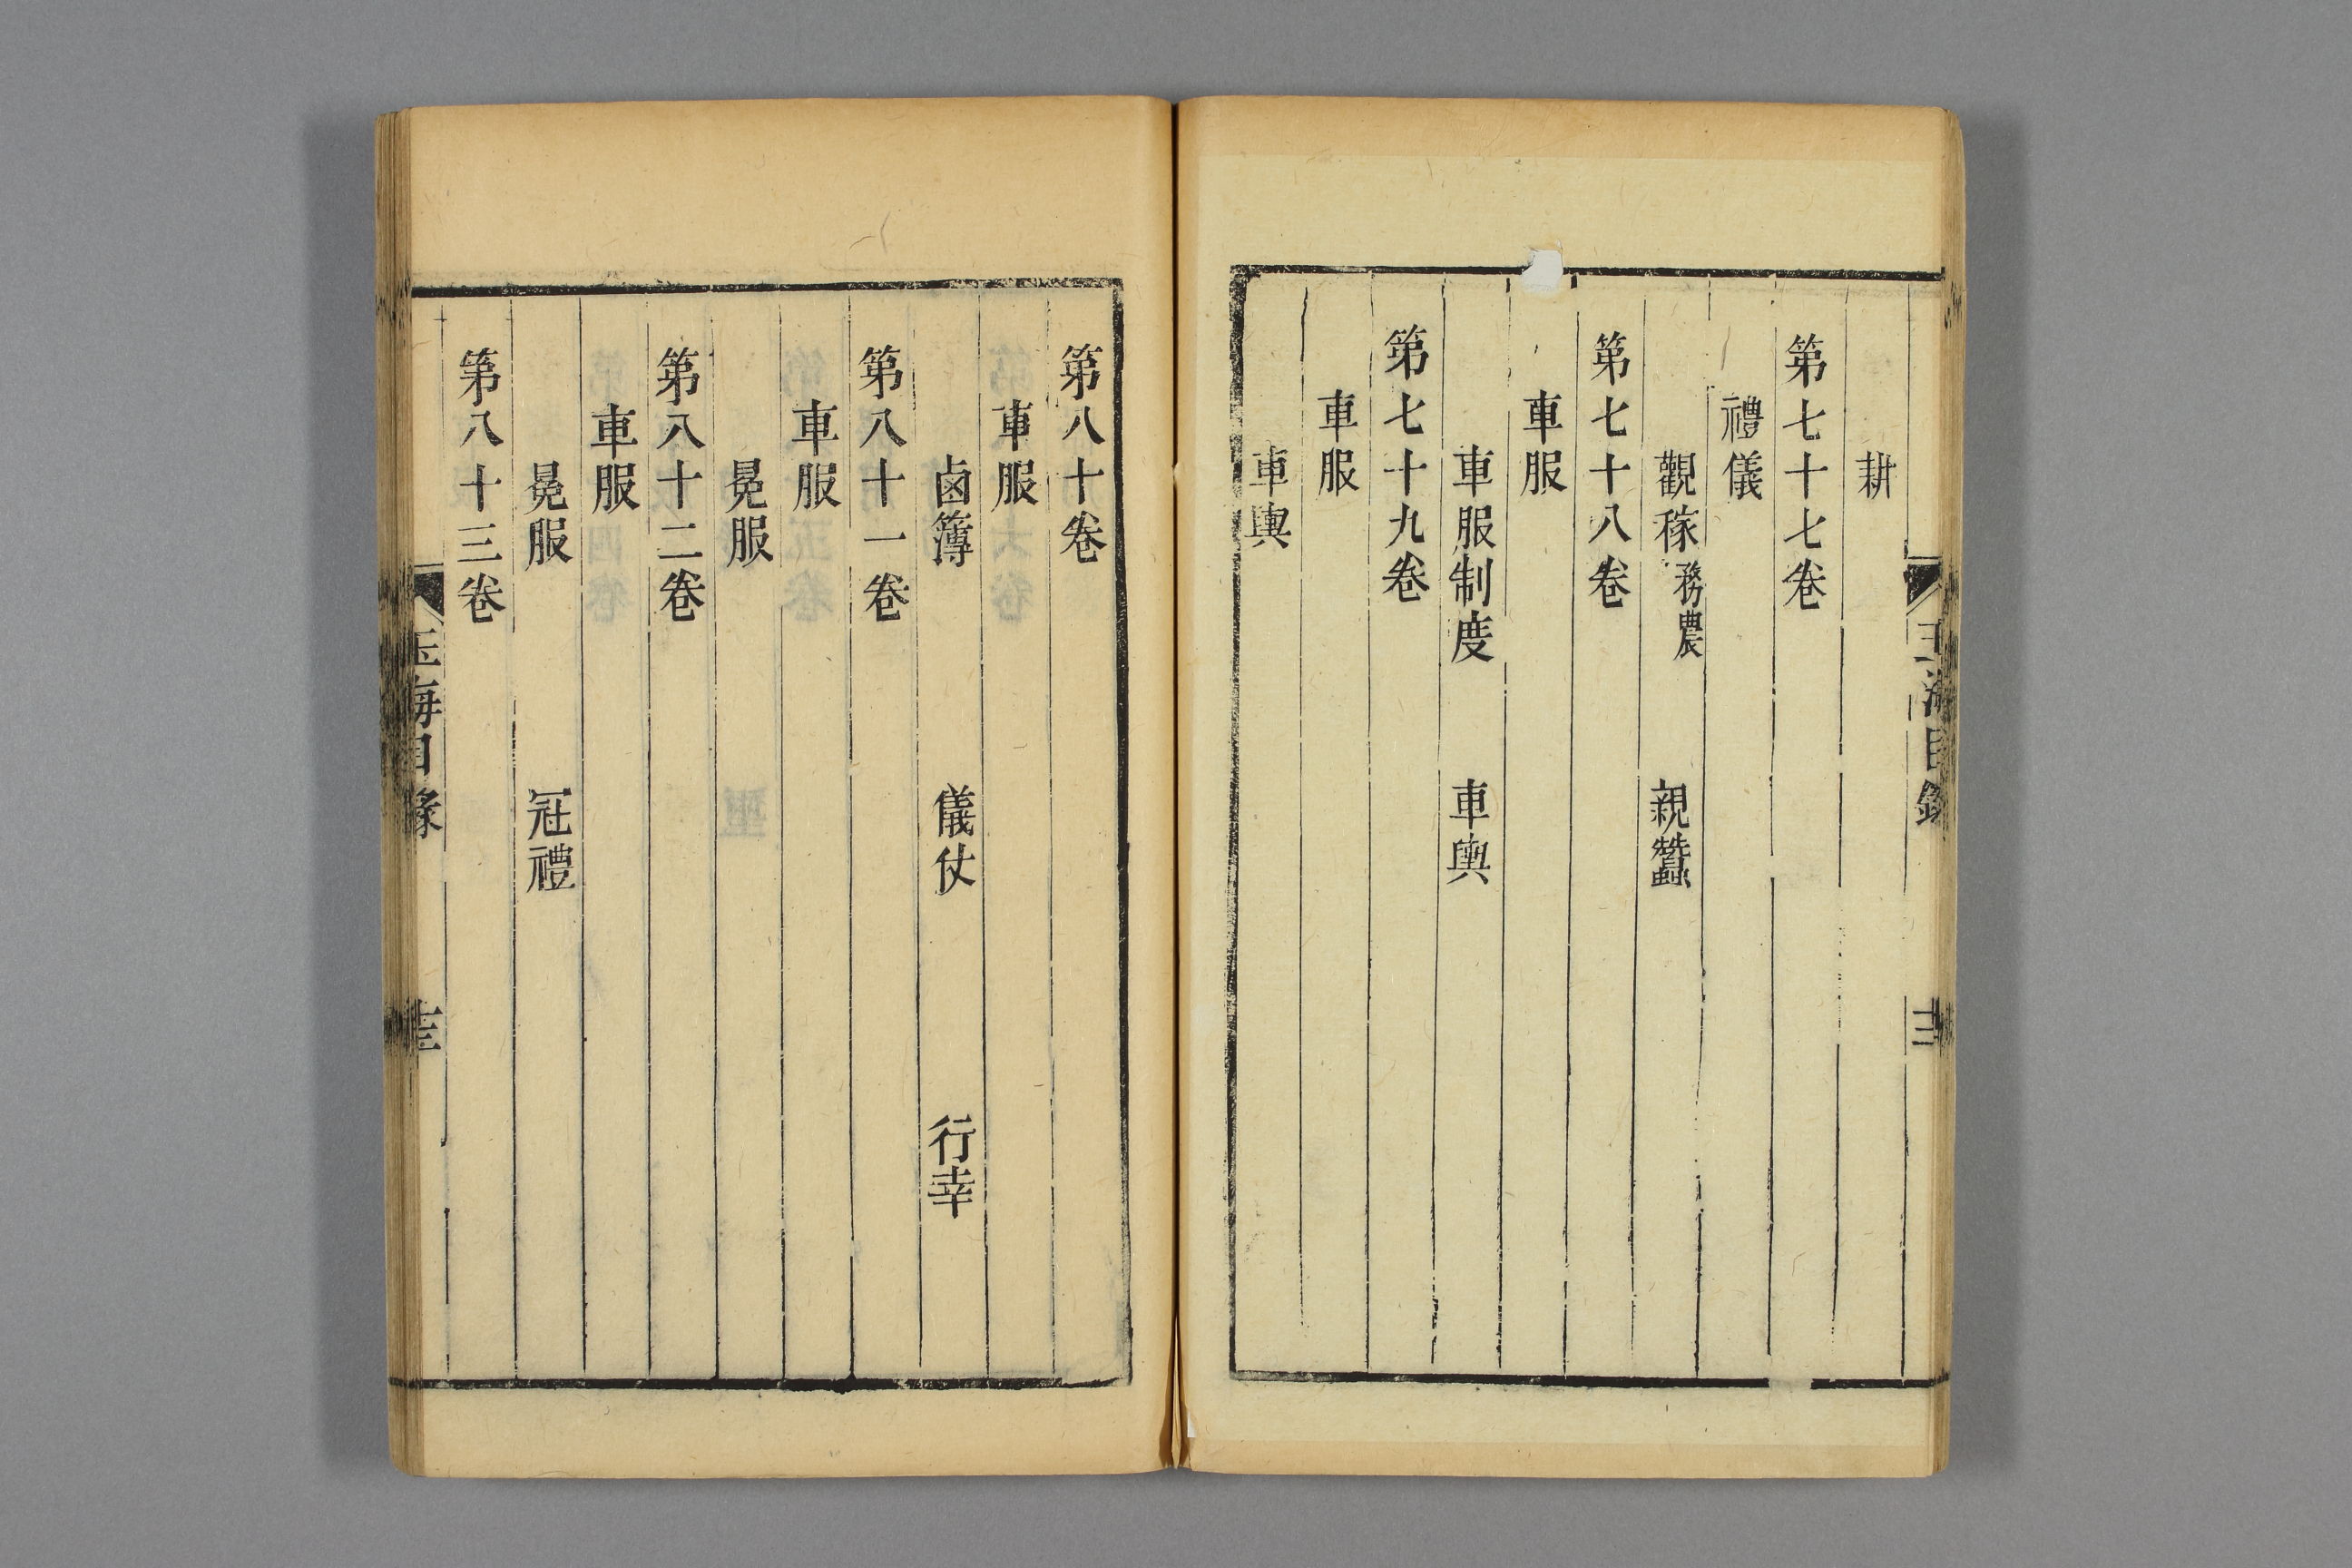 耕
第七十七卷
禮儀
觀稼務農 親蠶
第七十八卷
車服
車服制度 車輿
第七十九卷
車服
車輿
第八十卷
車服
鹵簿 儀仗 行幸
第八十一卷
車服
冕服
第八十二卷
車服
冕服 冠禮
第八十三卷
玉海目錄